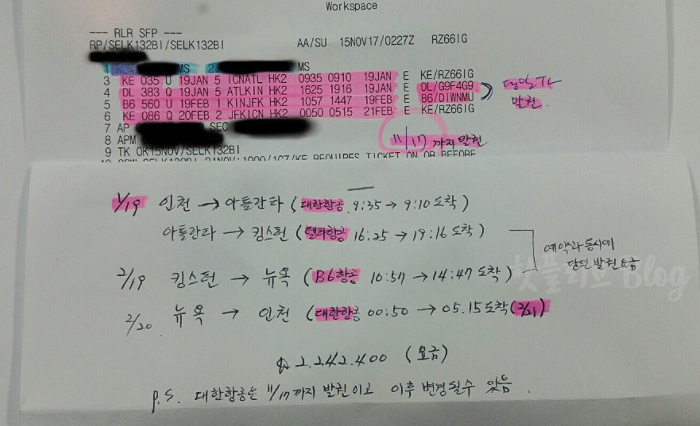 Workspace
--- RLR SFP ---
RP/SELK132BI/SELK132BI AA/SU 15NOV17/0227Z RZ66IG
1 MS 2 MS
3 KE 035 U 19JAN 5 ICNATL HK2 0935 0910 19JAN E KE/RZ66IG
4 DL 383 Q 19JAN 5 ATLKIN HK2 1625 1916 19JAN E DL/G9F4G9
5 B6 560 U 19FEB 1 KINJFK HK2 1057 1447 19FEB E B6/DIWNMU
6 KE 086 Q 20FEB 2 JFKICN HK2 0050 0515 21FEB E KE/RZ66IG
당일 TL
발권.
7 AP SEC
8 APM
9 TK OK15NOV/SELK132BI
11/17 까지 발권
REQUIRES TICKET ON OR BEFORE
1/19 인천 → 아틀란타 (대한항공 9:35 → 9:10 도착)
아틀란타 → 킹스턴 (델타항공 16:25 → 19:16 도착)
2/19 킹스턴 → 뉴욕 (B6항공 10:57 → 14:47 도착)
예약과 동시에
당일 발권 요금
2/20 뉴욕 → 인천 (대한항공 00:50 → 05.15 도착 (2/21)
2.242.400 (요금)
P.S. 대한항공은 11/17 까지 발권이고 이후 변경될수 있음.
핫플러스 Blog